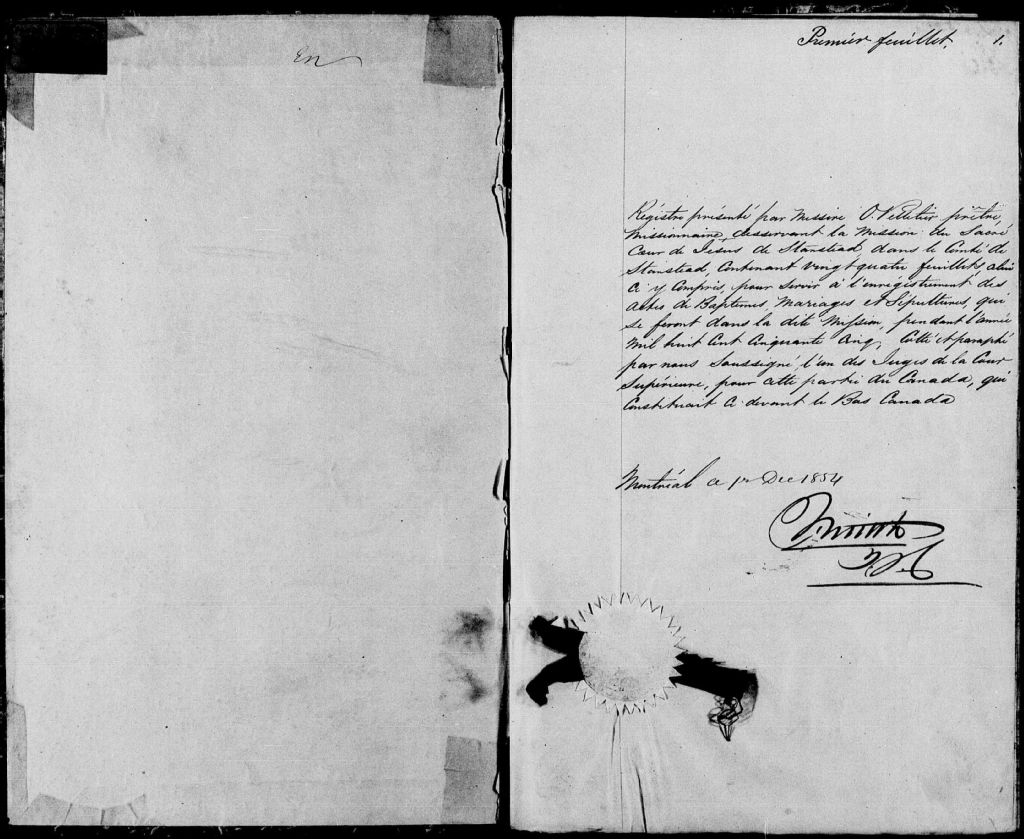 En
Premier feuillet. 1.
Régistre présenté par Messire O. Pelletier prêtre
Missionnaire, desservant la Mission du Sacré
Cœur de Jesus de Stanstead, dans le Comté de
Stanstead, Contenant vingt quatre feuillets, celui
ci y Compris, pour servir à l'enrégistrement des
actes de Baptemes, Mariages et Sépultures, qui
se feront dans la dite Mission, pendant l'année
Mil huit Cent Cinquante Cinq, Cotté et paraphé
par nous Soussigné, l'un des Juges de la Cour
Supérieure, pour cette partie du Canada, qui
Constituait ci devant le Bas Canada
Montréal ce 1r Dec 1854